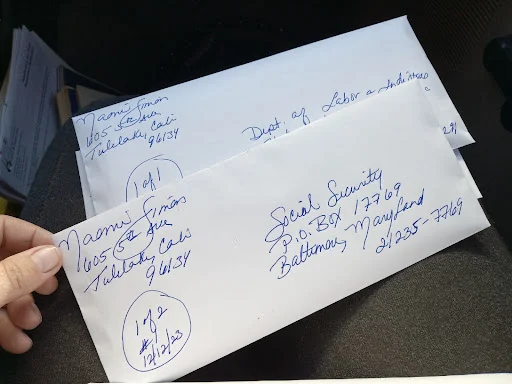 Naomi Simon
1605 5th Ave
Tulelake, Cali
96134
1 of 1
Dept. of Labor & Industries
Naomi Simons
1605 5th Ave
Tulelake, Cali
96134
1 of 2
12/12/23
Social Security
P.O. Box 17769
Baltimore, Maryland
21235-7769